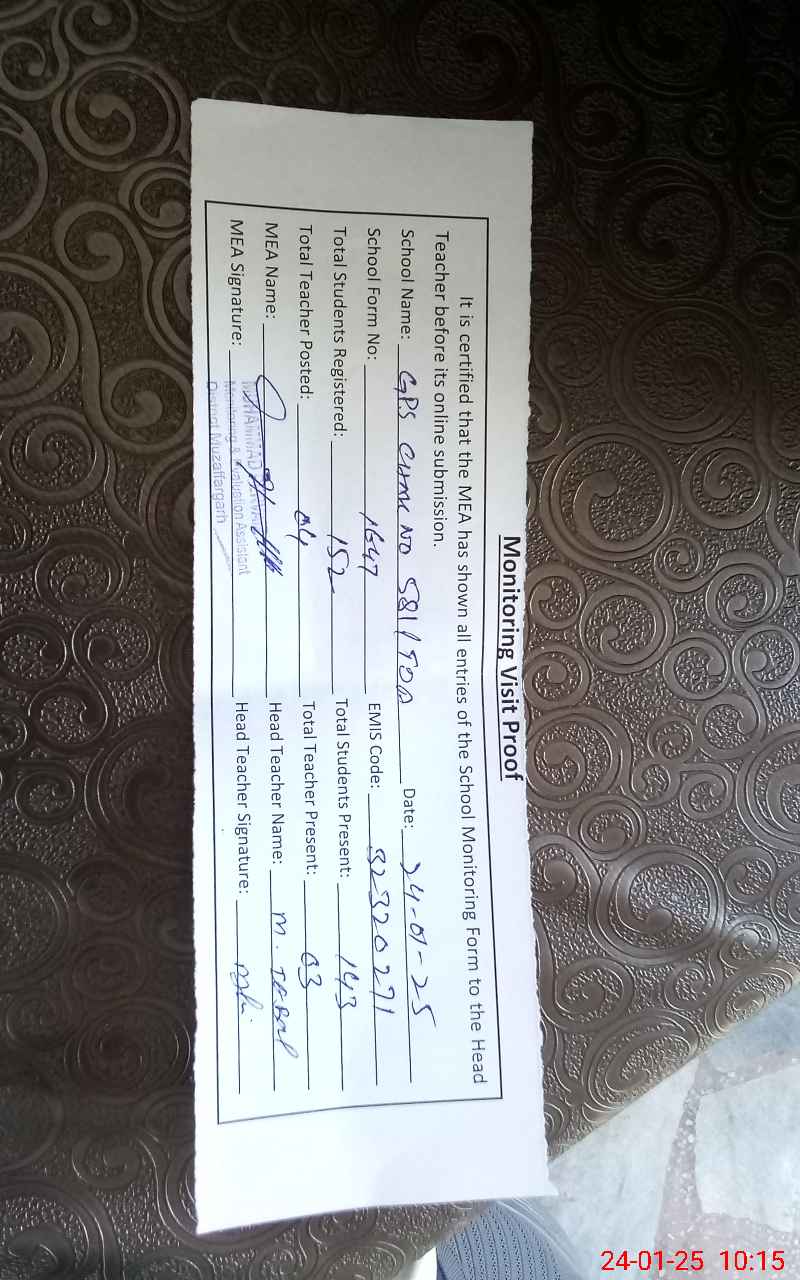 Monitoring Visit Proof
It is certified that the MEA has shown all entries of the School Monitoring Form to the Head
Teacher before its online submission.
School Name: GPS CHAK NO 581/TDA Date: 24-01-25
School Form No: 1647 EMIS Code: 32320271
Total Students Registered: 152 Total Students Present: 143
Total Teacher Posted: 04 Total Teacher Present: 03
MEA Name: Head Teacher Name: M. IQBAL
MEA Signature: Head Teacher Signature:
MUHAMMAD
Monitoring & Evaluation Assistant
District Muzaffargarh
24-01-25 10:15